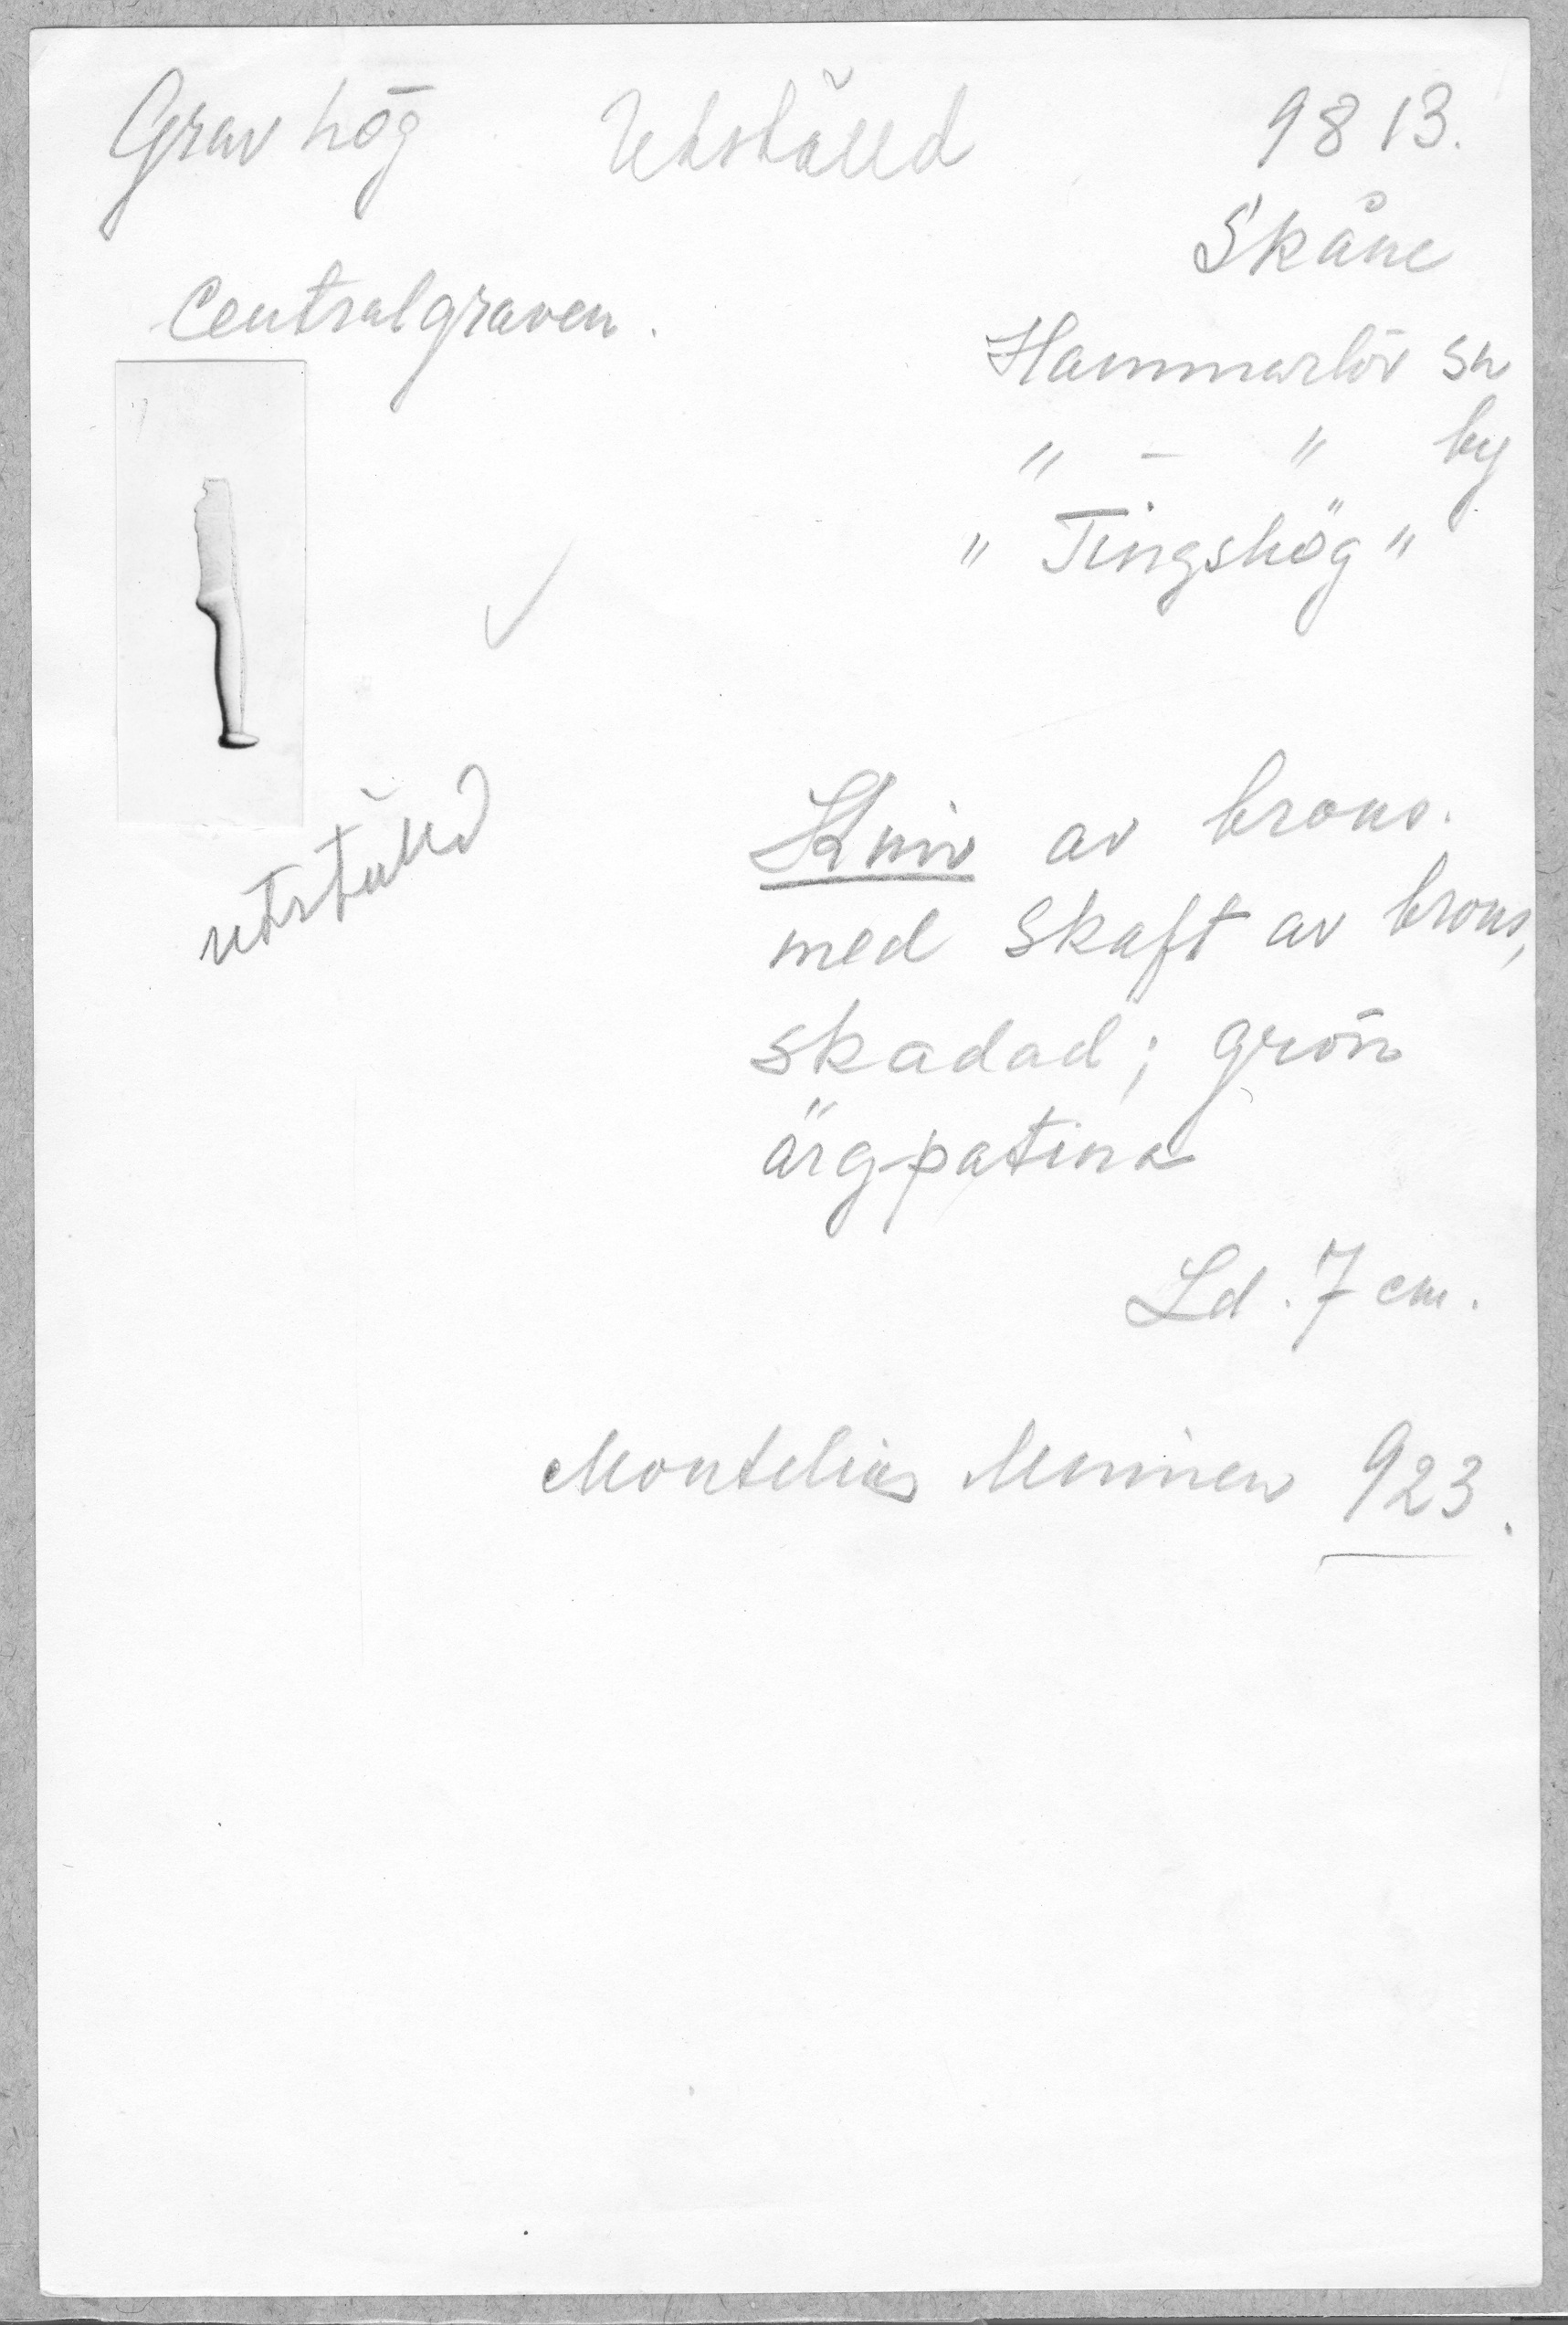 Grav hög Utställd 9813.
Skåne
Centralgraven.
Hammarlöv sn
" - " by
" Tingshög "
Kniv av brons.
utställd
med skaft av brons,
skadad; grön
ärg-patina
Ld. 7 cm.
Montelius Minnen 923.